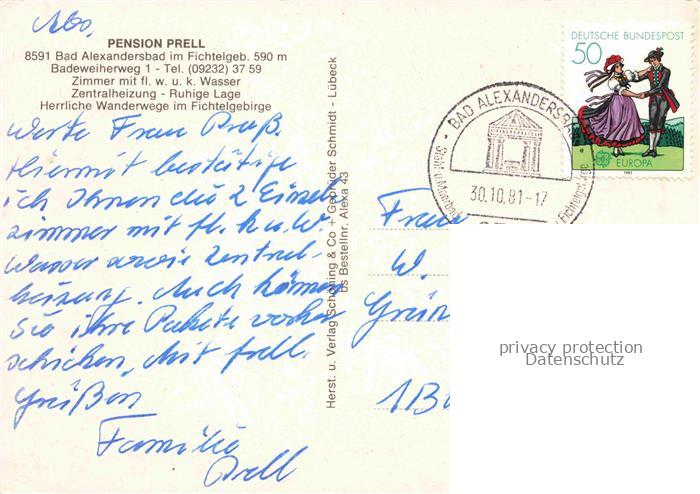 Abs,
PENSION PRELL
8591 Bad Alexandersbad im Fichtelgeb. 590 m
Badeweiherweg 1 - Tel. (09232) 37 59
Zimmer mit fl. w. u. k. Wasser
Zentralheizung - Ruhige Lage
Herrliche Wanderwege im Fichtelgebirge
Werte Frau Preß.
Hiermit bestätige
ich Ihnen die 2 Einzel
zimmer mit fl. k u. W.
Wasser sowie Zentral-
heizung. Auch können
Sie ihre Pakete vorher
schicken, Mit frell.
Grüßen
Familie
Prell
Herst. u. Verlag Schöning & Co + Gebrüder Schmidt - Lübeck
bs Bestellnr. Alexa 43
DEUTSCHE BUNDESPOST
50
EUROPA
1981
BAD ALEXANDERSBAD
30.10.81-17
Fichtelgebirge
Frau
W.
1 B
privacy protection
Datenschutz